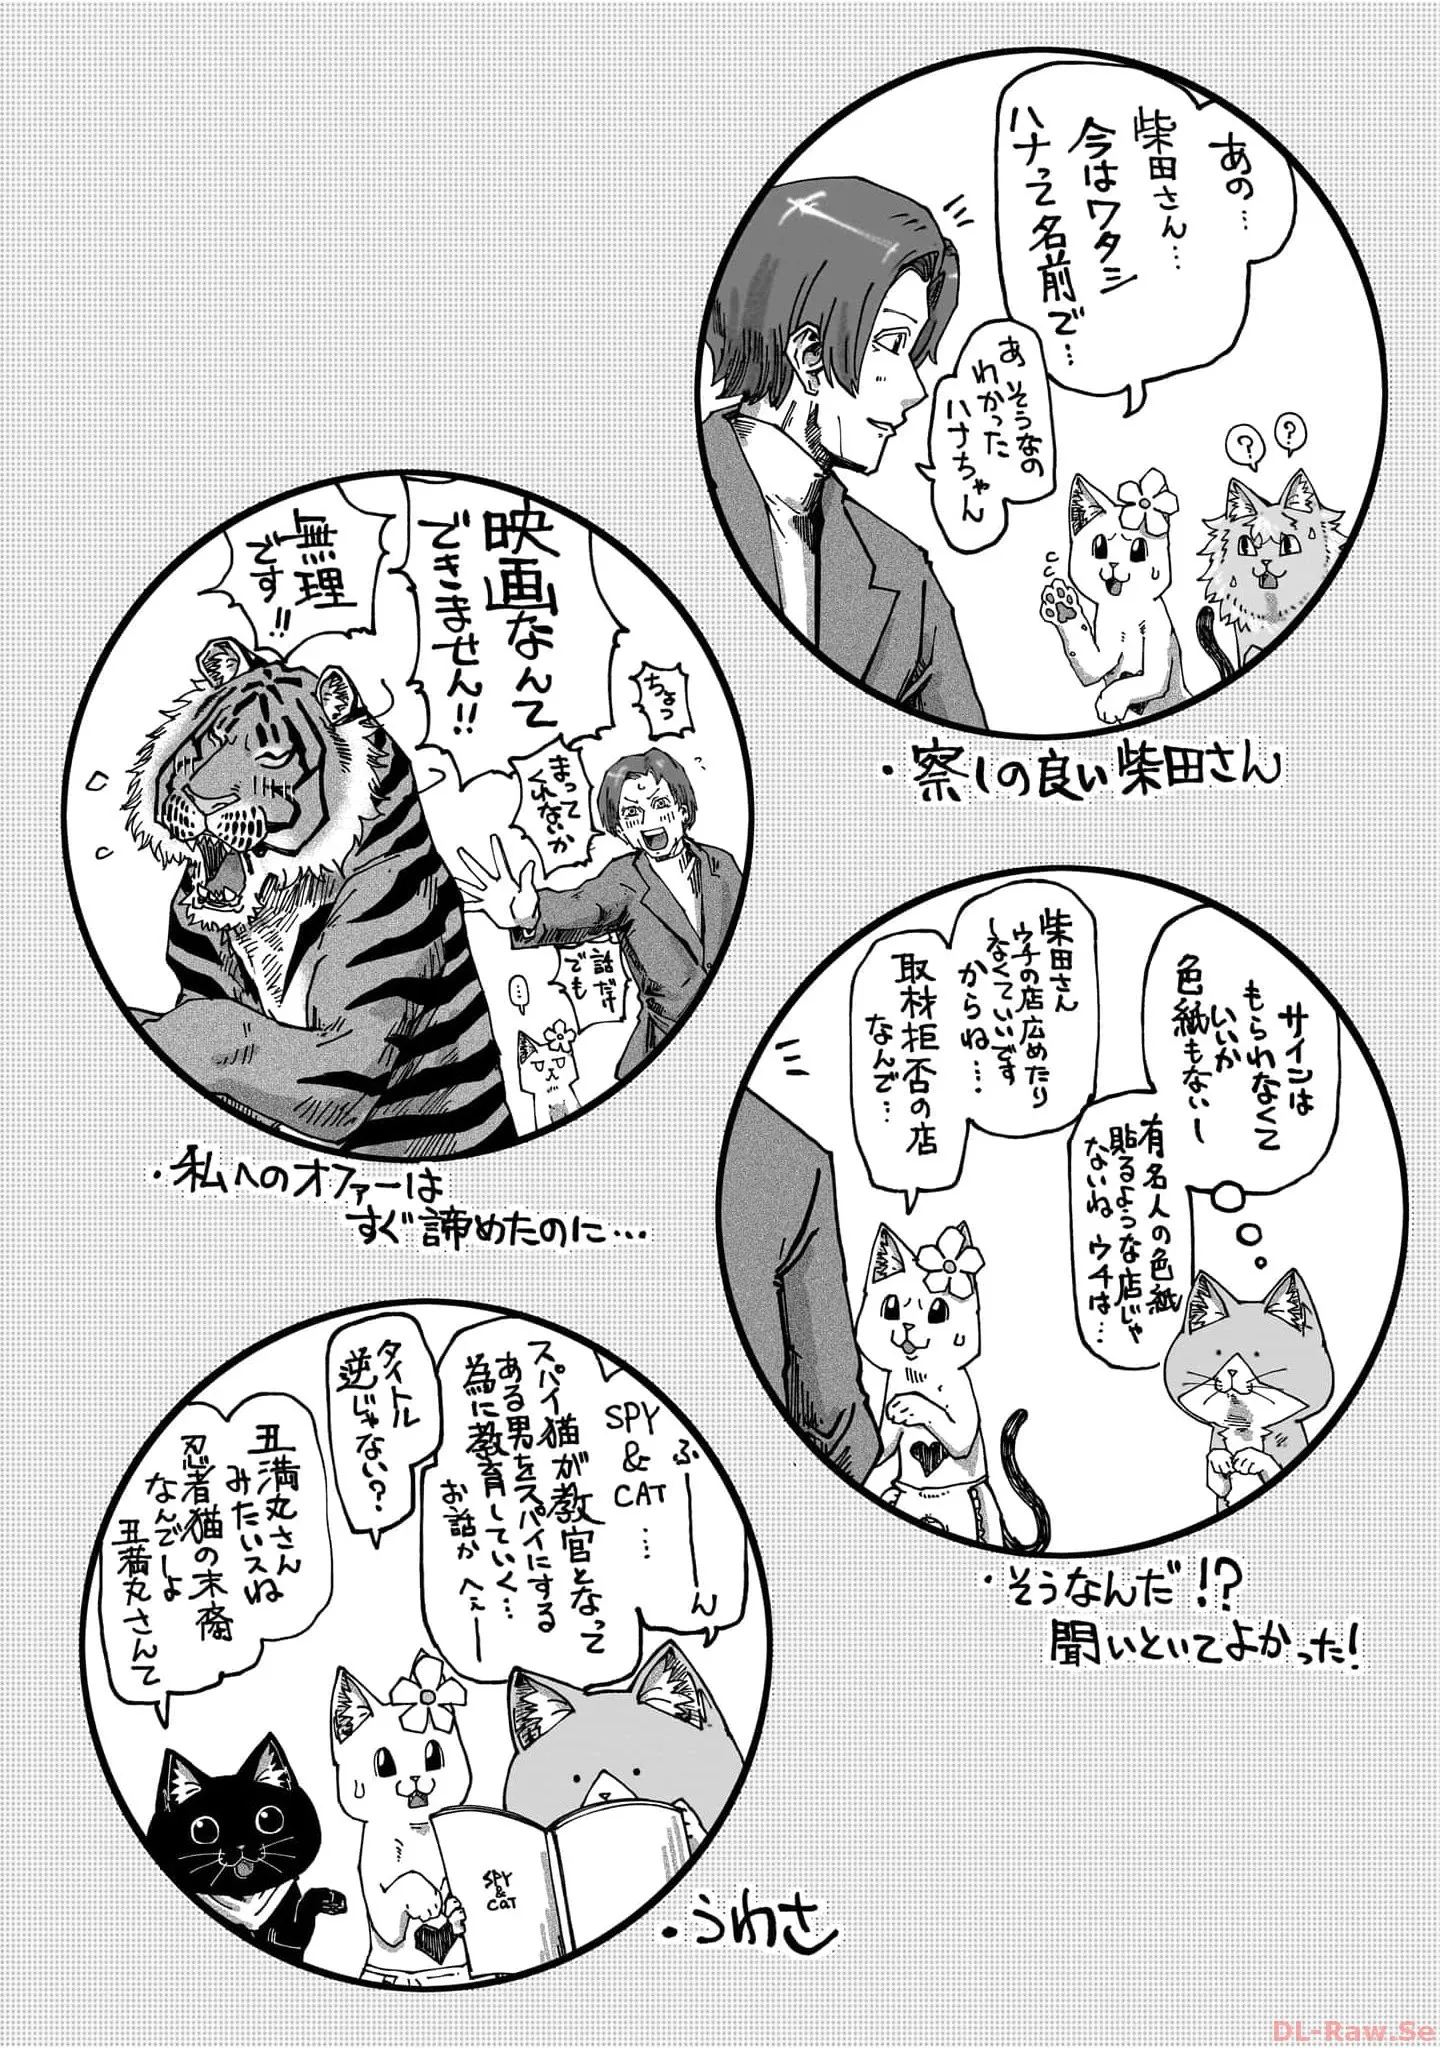 あの…
柴田さん…
今はワタシ
ハナって名前で…
あ そうなの
わかった
ハナちゃん
?
?
・察しの良い柴田さん
映画なんて
できません!!
無理
です!!
ちょっ
まって
くれないか
話だけ
でも
…
・私へのオファーは
すぐ諦めたのに…
サインは
もらわれなくて
いいか
色紙もないし
有名人の色紙
貼るような店じゃ
ないね ウチは…
柴田さん
ウチの店広めたり
しなくていいです
からね…
取材拒否の店
なんで…
・そうなんだ!?
聞いといてよかった!
ふーーん
SPY
&
CAT
…
スパイ猫が教官となって
ある男をスパイにする
為に教育していく…
お話か へぇー
タイトル
逆じゃない?
丑満丸さん
みたいスね
忍者猫の末裔
なんでしょ
丑満丸さんて
SPY
&
CAT
・うわさ
DL-Raw.Se